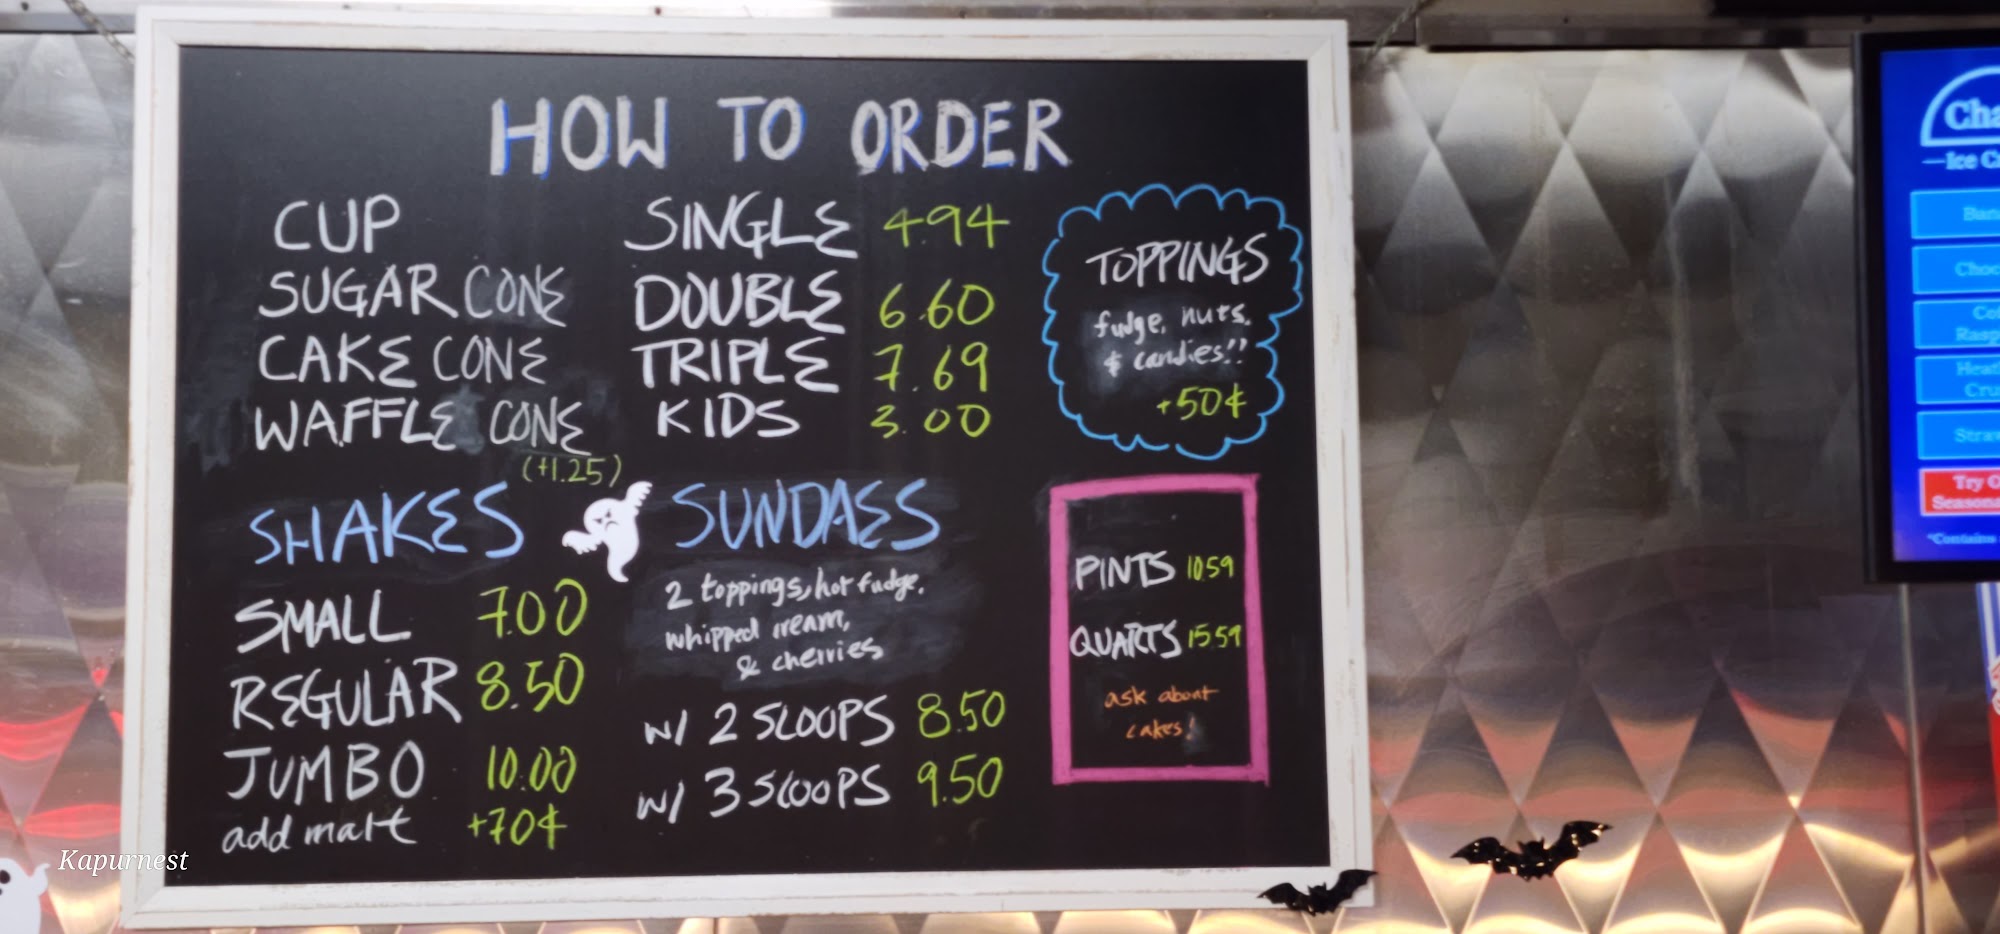 HOW TO ORDER
CUP
SUGAR CONE
CAKE CONE
WAFFLE CONE
(+1.25)
SINGLE 4.94
DOUBLE 6.60
TRIPLE 7.69
KIDS 3.00
TOPPINGS
fudge, nuts,
& candies!!
+50¢
SHAKES
SMALL 7.00
REGULAR 8.50
JUMBO 10.00
add malt +70¢
SUNDAES
2 toppings, hot fudge,
whipped cream,
& cherries
w/ 2 SCOOPS 8.50
w/ 3 SCOOPS 9.50
PINTS 10.59
QUARTS 15.59
ask about
cakes!
Kapurnest
Try O
Season